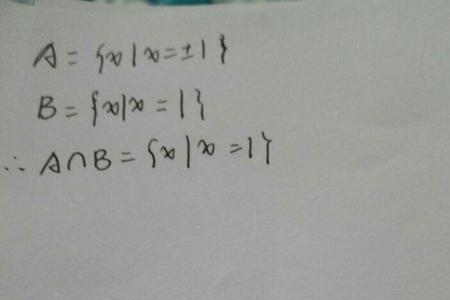 A = {x|x=±1}
B = {x|x = 1}
∴ A∩B = {x|x =1}